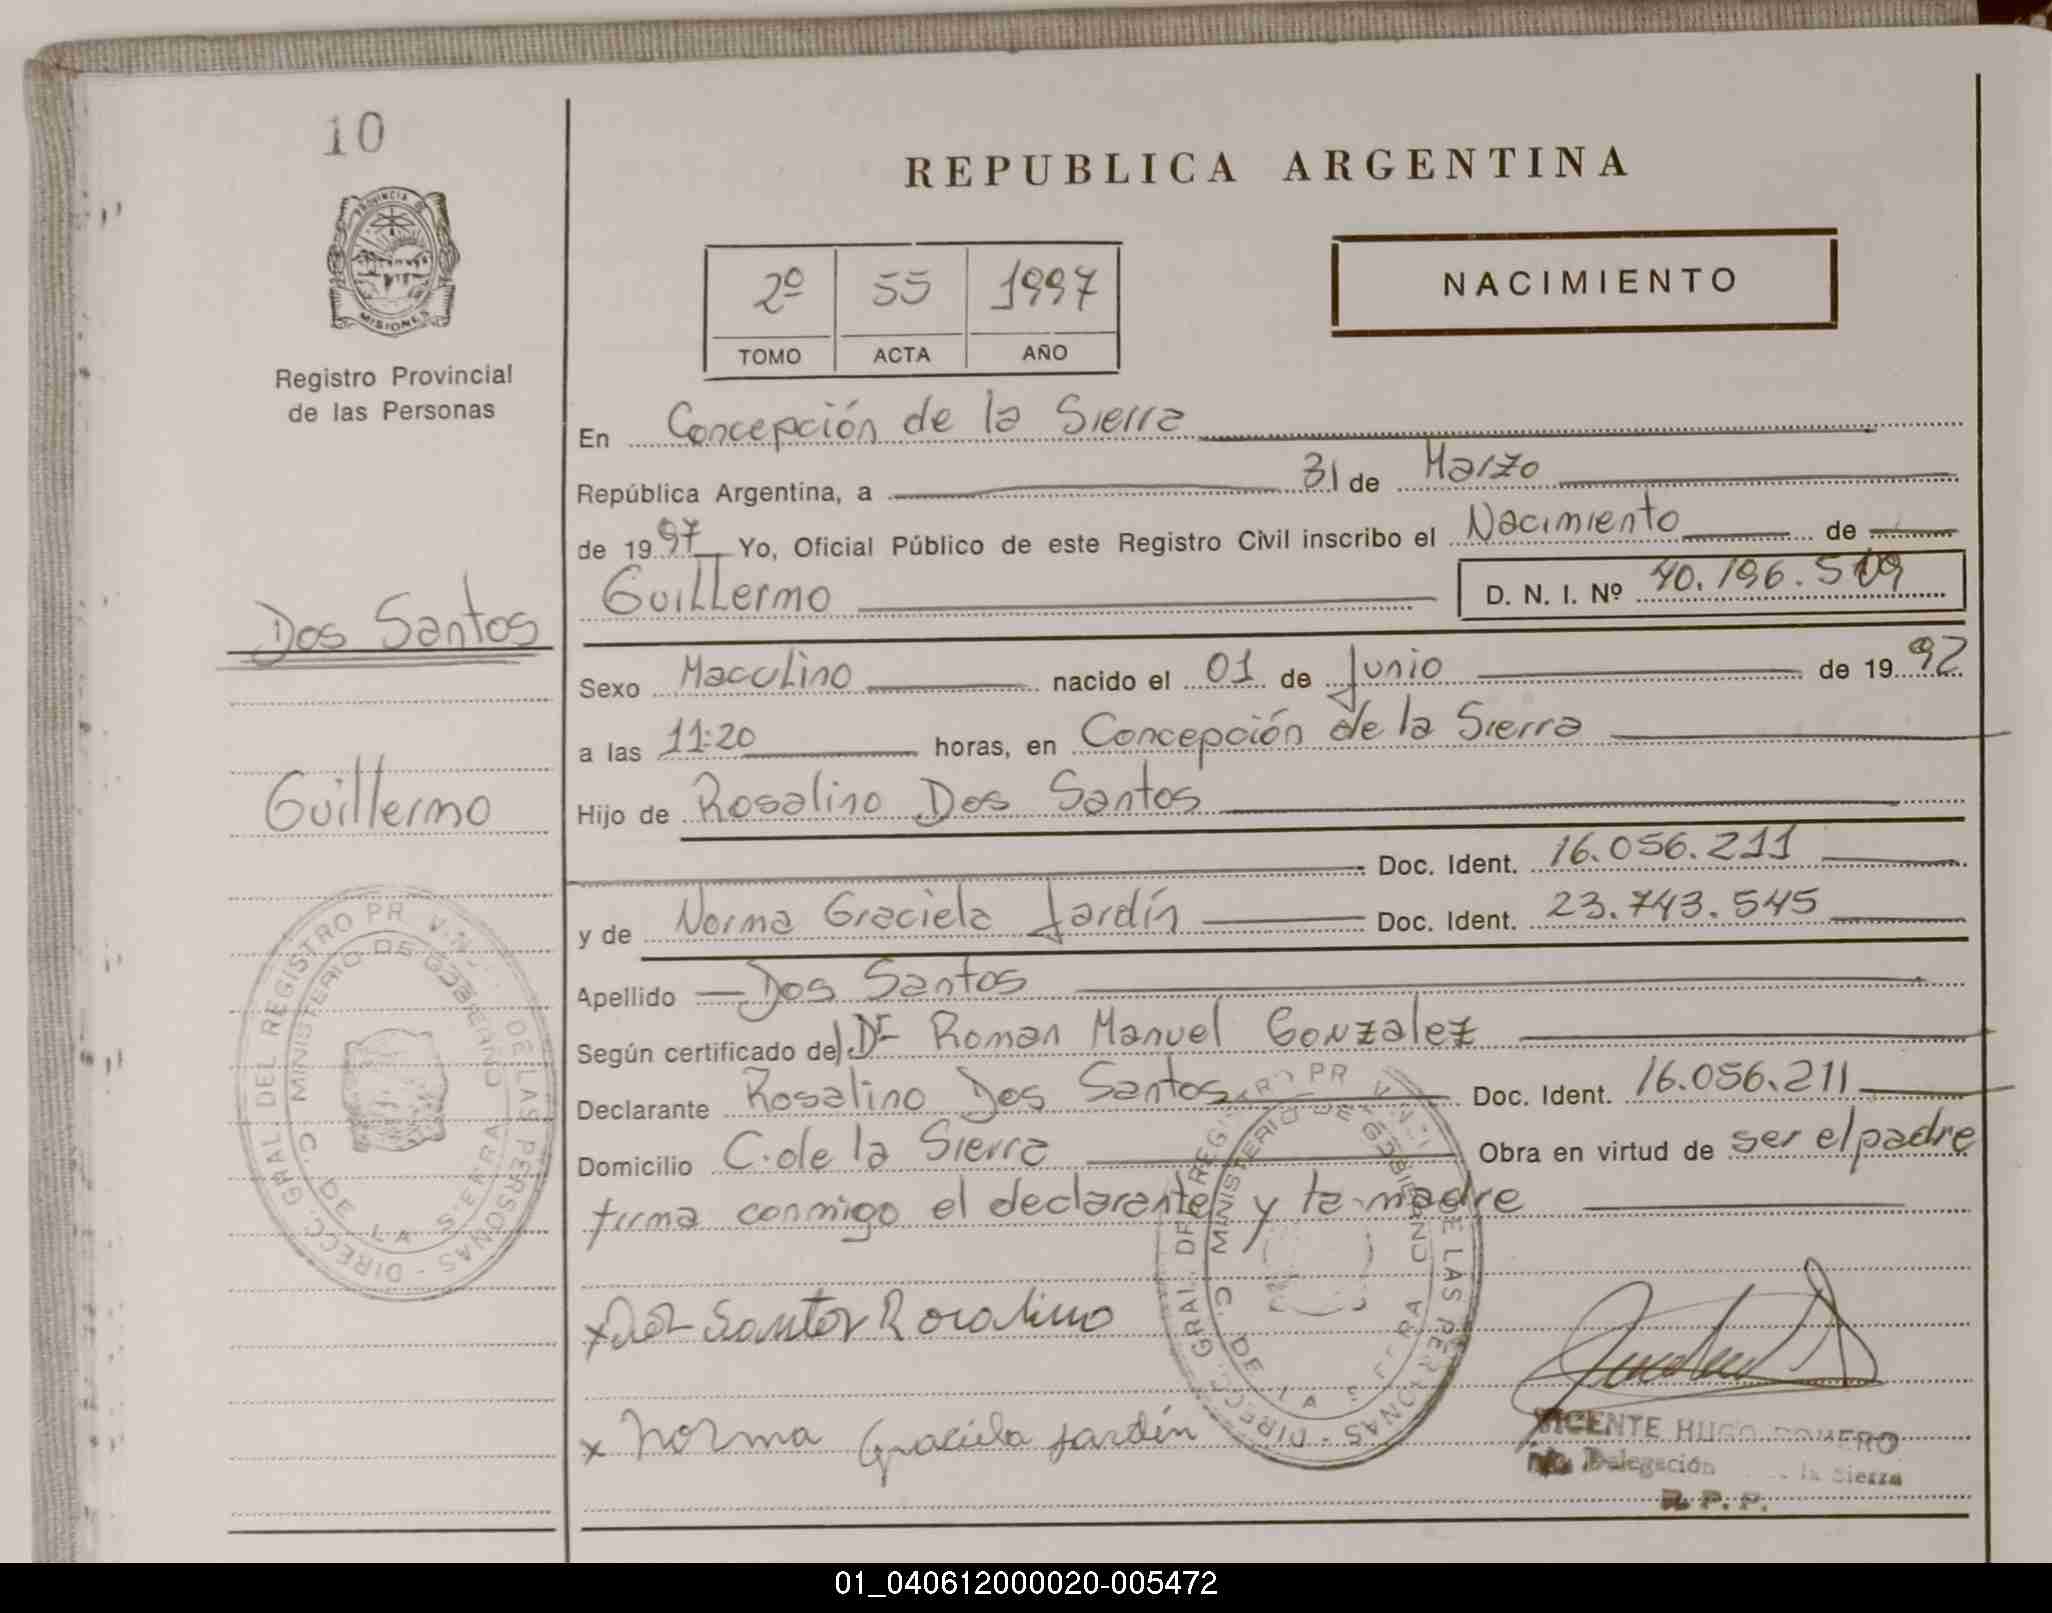 10
PROVINCIA DE
MISIONES
Registro Provincial
de las Personas
Dos Santos
Guillermo
DIRECC. GRAL. DEL REGISTRO PR V.N. DE LAS PERSONAS
MINISTERIO DE GOBIERNO
C. DE LA SIERRA
REPUBLICA ARGENTINA
2º 55 1997
TOMO ACTA AÑO
NACIMIENTO
En Concepción de la Sierra
República Argentina, a 31 de Marzo
de 1997 Yo, Oficial Público de este Registro Civil inscribo el Nacimiento de
Guillermo D. N. I. Nº 40.196.509
Sexo Maculino nacido el 01 de Junio de 1992
a las 11:20 horas, en Concepción de la Sierra
Hijo de Rosalino Dos Santos
Doc. Ident. 16.056.211
y de Norma Graciela Jardín Doc. Ident. 23.743.545
Apellido Dos Santos
Según certificado del Dr Roman Manuel Gonzalez
Declarante Rosalino Dos Santos Doc. Ident. 16.056.211
Domicilio C. de la Sierra Obra en virtud de ser el padre
firma conmigo el declarante y la madre
x Dos Santos Rosalino
x Norma Graciela Jardín
VICENTE HUGO ROMERO
Delegación la Sierra
R. P. P.
01_040612000020-005472